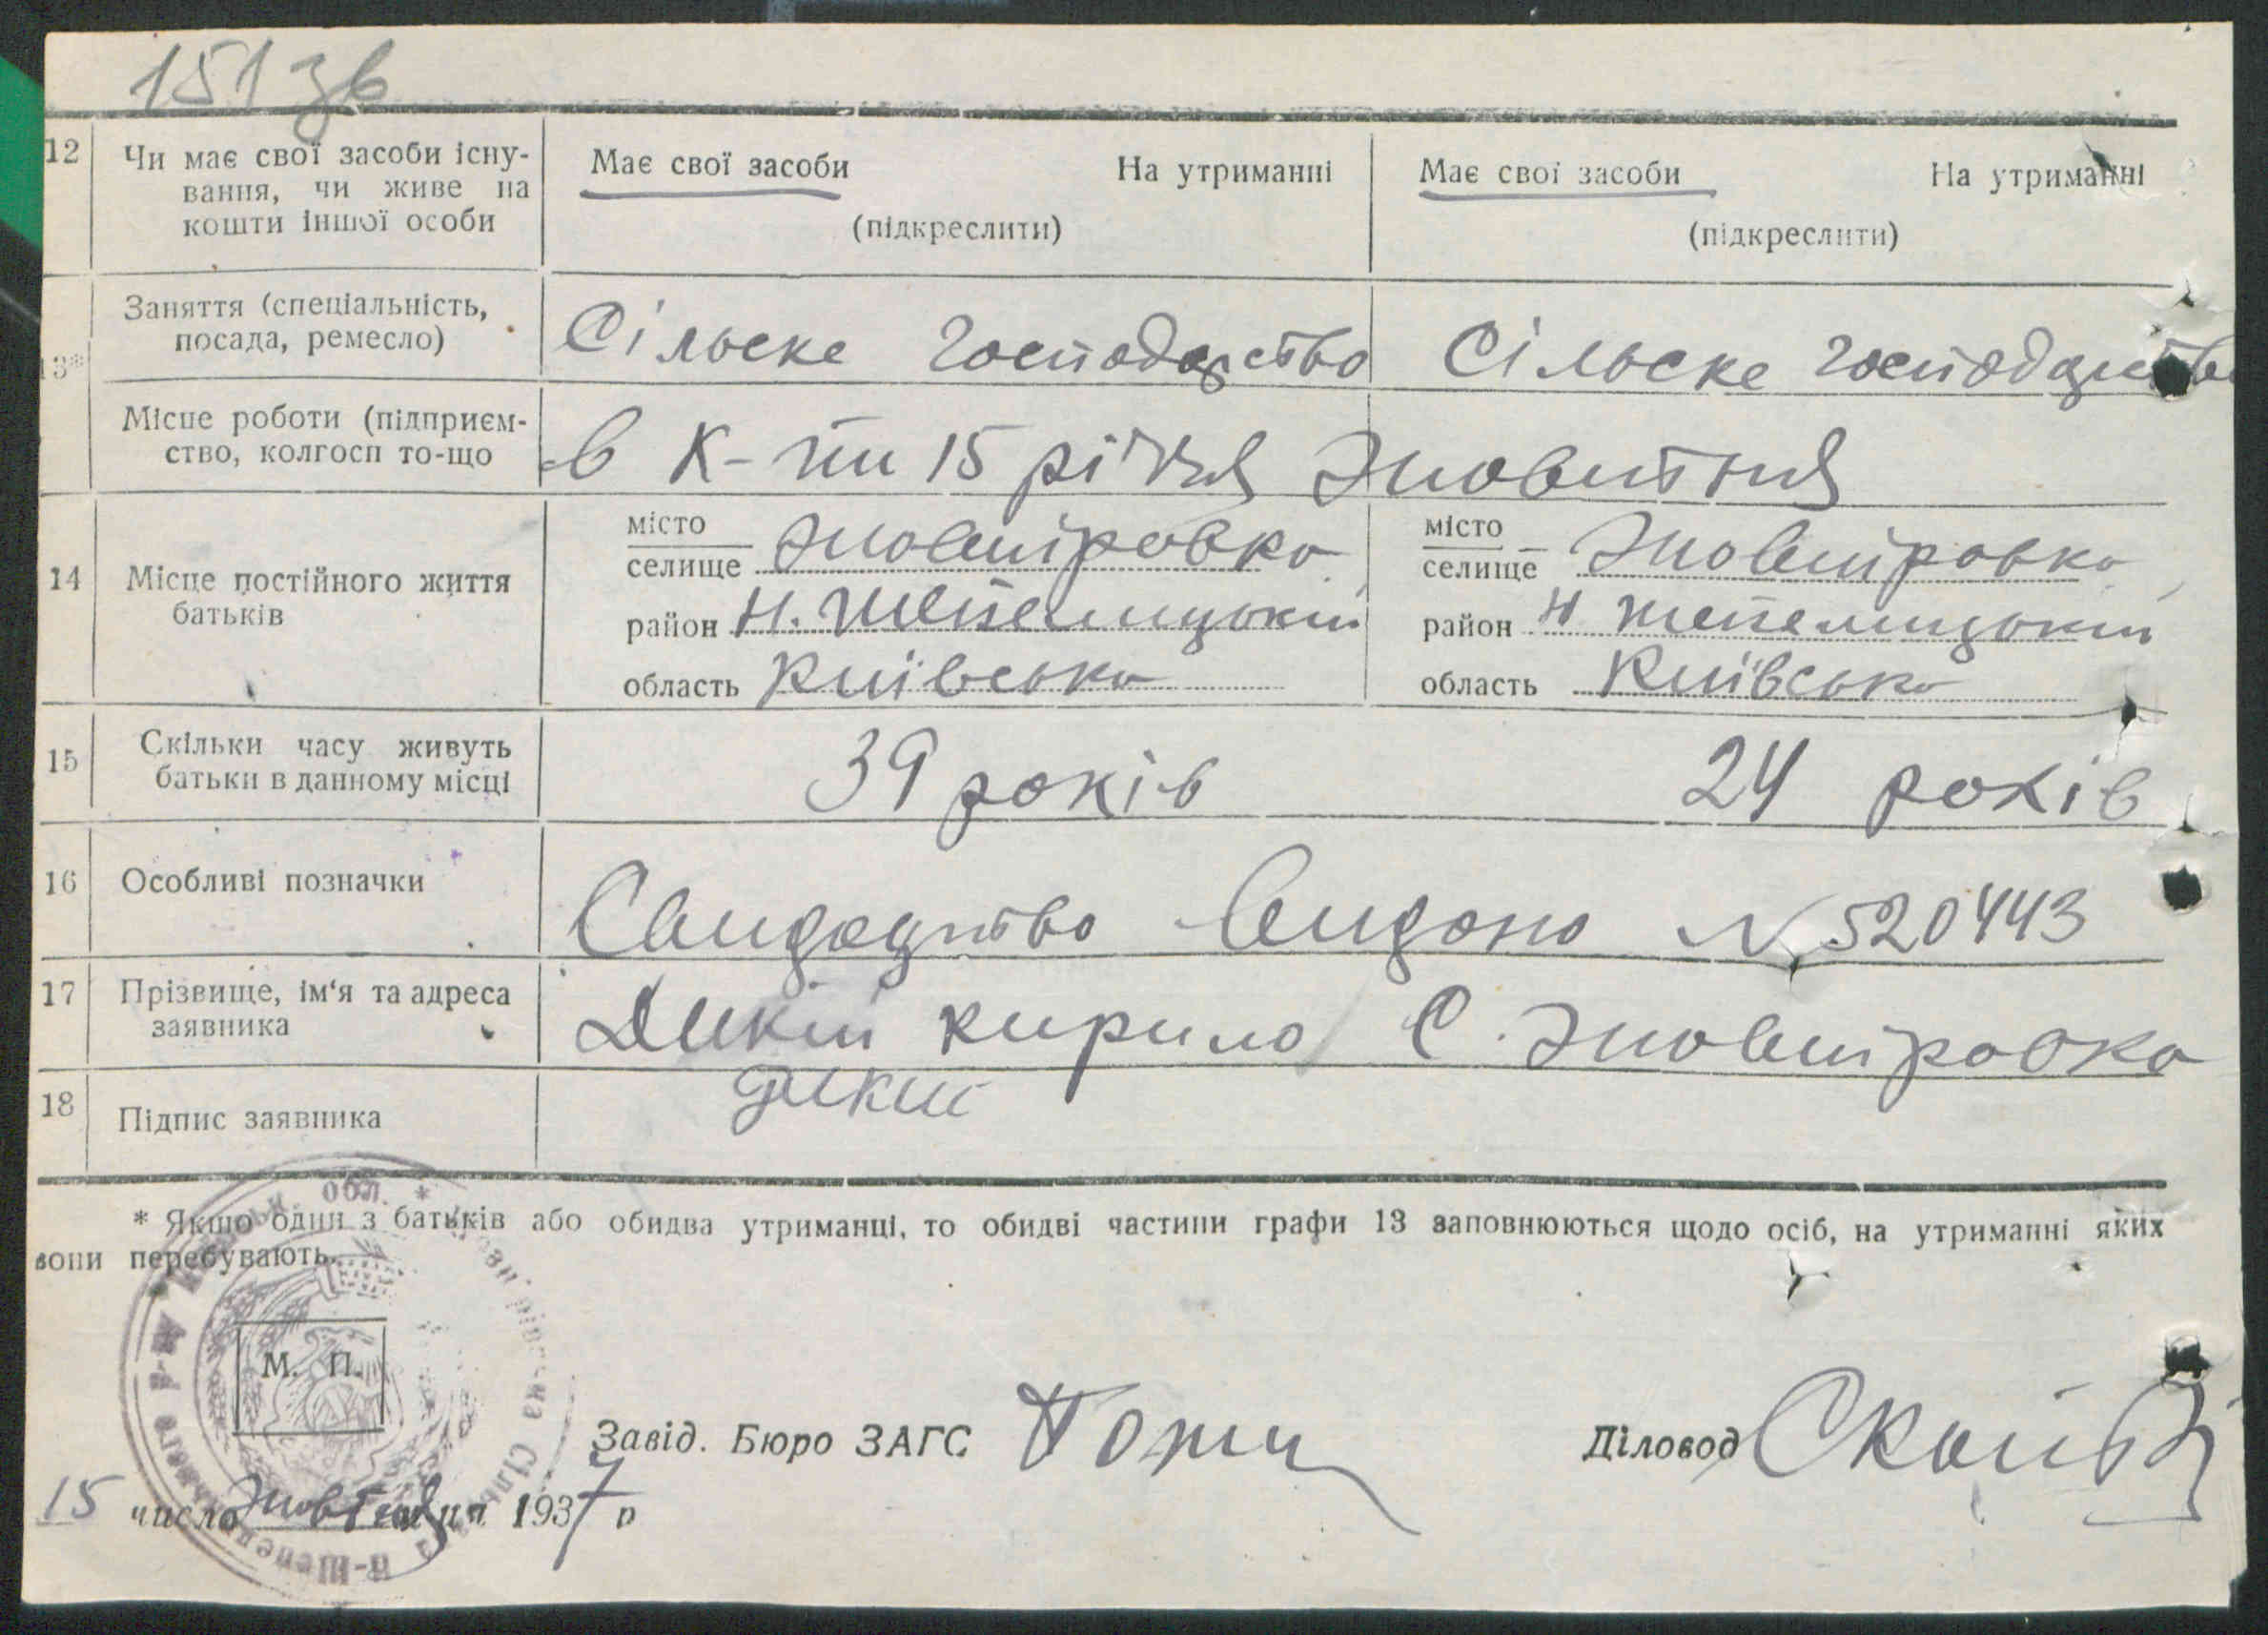 151 зв
12 Чи має свої засоби існу- Має свої засоби На утриманні Має свої засоби На утриманні
вання, чи живе на
кошти іншої особи (підкреслити) (підкреслити)
Заняття (спеціальність,
посада, ремесло) Сільске господарство Сільске господарство
13*
Місце роботи (підприєм-
ство, колгосп то-що в К-пи 15 річчя Жовтня
місто місто
селище Жовтнівровка селище
14 Місце постійного життя
батьків район Н. Шепелицький район Н Шепелицький
область Київська область Київська
15 Скільки часу живуть
батьки в данному місці 39 років 24 років
16 Особливі позначки
Свидоцтво видано N 520443
17 Прізвище, ім'я та адреса
заявника Дикій Кирило С.
18 Підпис заявника Дикий
* Якщо один з батьків або обидва утриманці, то обидві частини графи 13 заповнюються щодо осіб, на утриманні яких
вони перебувають.
М. П.
Завід. Бюро ЗАГС Діловод
15 число Жовтня 1937 р